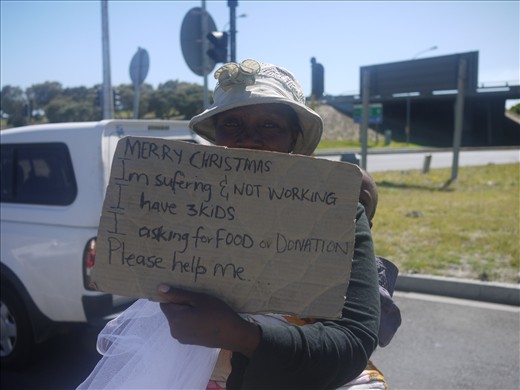 MERRY CHRISTMAS
Im sufering & NOT WORKING
I have 3KIDS
I asking for FOOD or DONATION
Please help me...